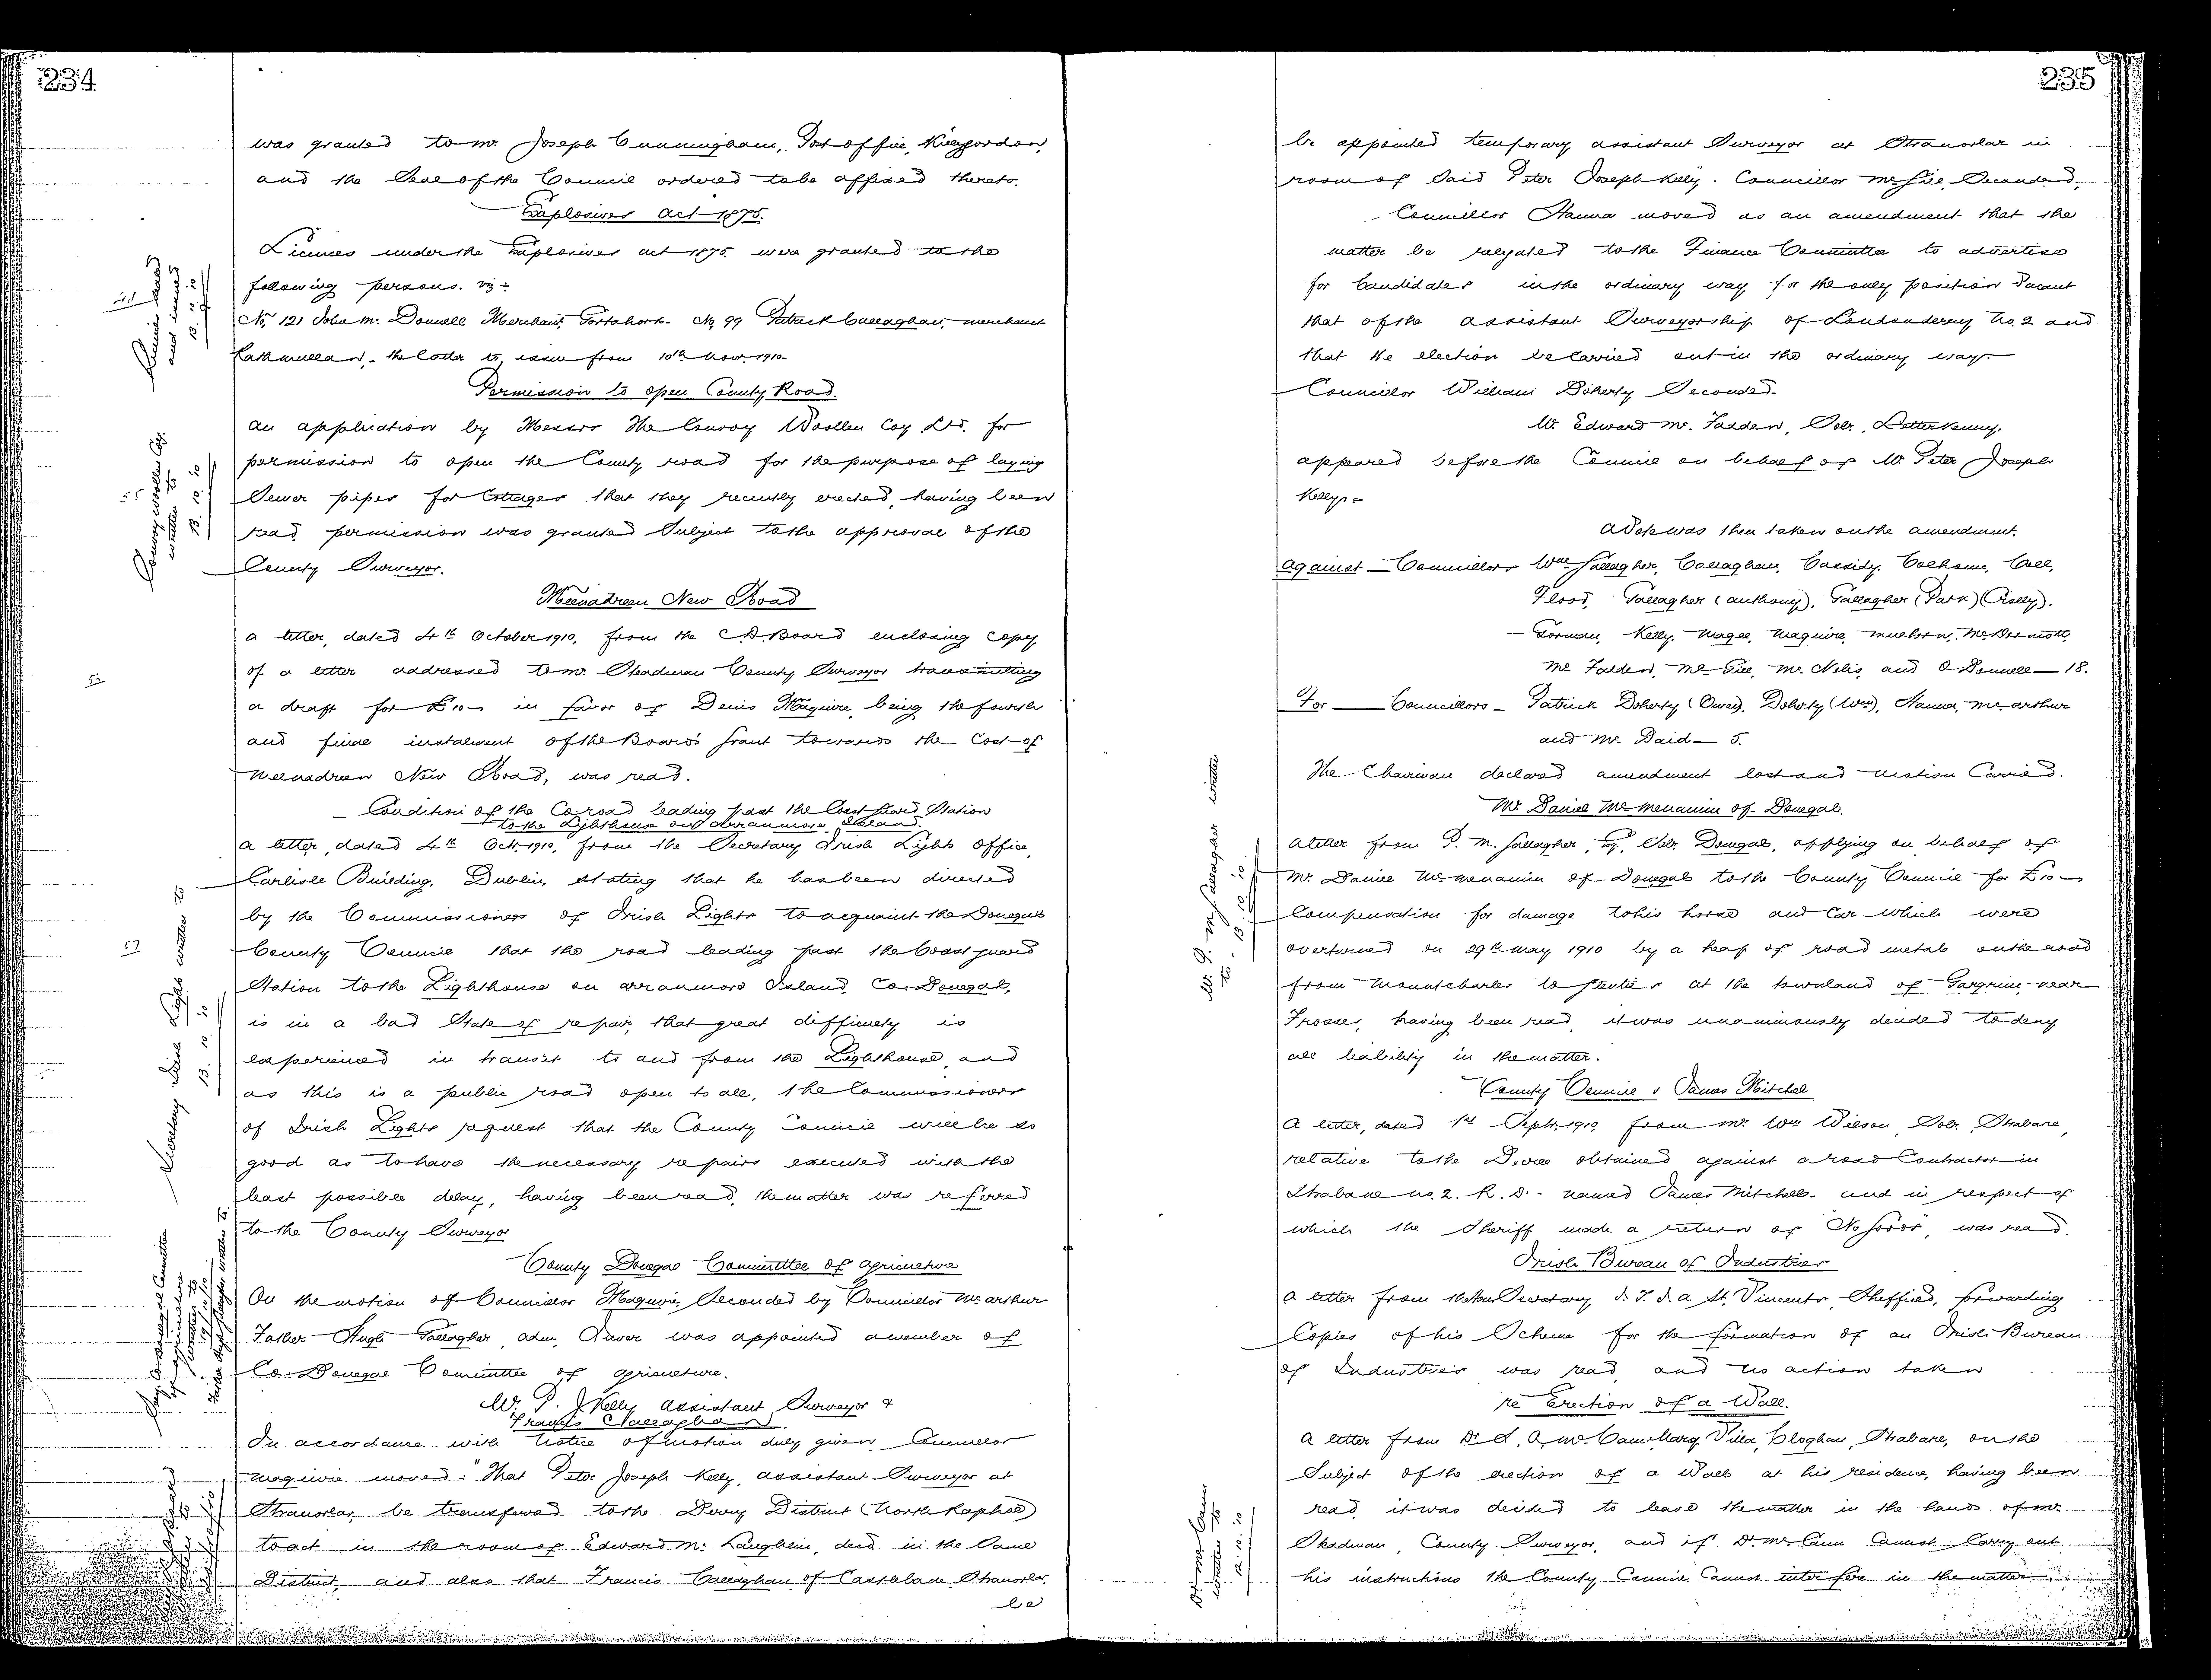 234
was granted to Mr Joseph Cunningham, Post office, Killygordon,
and the Seal of the Council ordered to be affixed thereto.
Explosives Act 1875.
Licences under the Explosives Act 1875 were granted to the
following persons. viz:-
No. 121 John Mc Donnell Merchant, Gortahork. No. 99 Patrick Callaghan, merchant
Rathmullan, the latter to issue from 10th Nov. 1910.
Permission to open County Road.
An application by Messrs The Convoy Woollen Coy. Ltd. for
permission to open the County road for the purpose of laying
Sewer pipes for Cottages that they recently erected, having been
read, permission was granted Subject to the approval of the
County Surveyor.
Convoy Woollen Coy.
written to
13. 10. 10
Meenadreen New Road
A letter, dated 4th October 1910, from the C.D. Board enclosing copy
of a letter addressed to Mr. Shadman County Surveyor transmitting
a draft for £10 - in favor of Denis Maguire, being the fourth
and final instalment of the Board's grant towards the Cost of
Meenadreen New Road, was read.
Condition of the Co. road leading past the Coast Guard Station
to the Lighthouse on Arranmore Island.
A letter, dated 4th Oct. 1910, from the Secretary Irish Lights Office,
Carlisle Building, Dublin, stating that he has been directed
by the Commissioners of Irish Lights to acquaint the Donegal
County Council that the road leading past the Coast guard
Station to the Lighthouse on Arranmore Island, Co. Donegal,
is in a bad State of repair, that great difficulty is
experienced in transit to and from the Lighthouse, and
as this is a public road open to all, the Commissioners
of Irish Lights request that the County Council will be so
good as to have the necessary repairs executed with the
least possible delay, having been read, the matter was referred
to the County Surveyor
57
Secretary Irish Lights written to
13. 10. 10
County Donegal Committee of Agriculture
On the motion of Councillor Maguire, Seconded by Councillor McArthur
Father Hugh Gallagher, adm, Inver was appointed a member of
Co. Donegal Committee of Agriculture.
Mr. P. J. Kelly Assistant Surveyor &
Francis Callaghan.
In accordance with Notice of motion duly given Councillor
Maguire moved:- "That Peter Joseph Kelly, Assistant Surveyor at
Stranorlar, be transferred to the Derry District (North Raphoe)
to act in the room of Edward Mc Laughlin, decd. in the Same
District, and also that Francis Callaghan of Castlelane Stranorlar,
be
235
be appointed temporary Assistant Surveyor at Stranorlar in
room of Said Peter Joseph Kelly. Councillor McGill Seconded.
Councillor Hanna moved as an amendment that the
matter be relegated to the Finance Committee to advertise
for Candidates in the ordinary way for the only position Vacant
that of the Assistant Surveyorship of Londonderry No. 2 and
that the election be carried out in the ordinary way.
Councillor William Doherty Seconded.
Mr. Edward Mc. Fadden, Solr., Letterkenny,
appeared before the Council on behalf of Mr Peter Joseph
Kelly.
A Vote was then taken on the amendment.
Against - Councillors Wm Gallagher, Callaghan, Cassidy, Colhoun, Coll,
Flood, Gallagher (Anthony), Gallagher (Patk)
Gorman, Kelly, Magee, Maguire, Mulhern, McDermott,
Mc Fadden, McGill, Mc. Nelis, and O'Donnell - 18.
For - Councillors - Patrick Doherty (Owen), Doherty (Wm), Hanna, McArthur
and Mc. Daid - 5.
The Chairman declared amendment lost and motion Carried.
Mr. Daniel McMenamin of Donegal.
A letter from P. M. Gallagher, Esq., Solr. Donegal, applying on behalf of
Mr. Daniel McMenamin of Donegal to the County Council for £10 -
Compensation for damage to his horse and Car which were
overturned on 29th May 1910 by a heap of road metal on the road
from Mountcharles to Glenties at the townland of Gargrim, near
Frosses, having been read, it was unanimously decided to deny
all liability in the matter.
Mr. P. M. Gallagher written
to - 13. 10. 10.
County Council v James Mitchel
A letter, dated 1st Septr. 1910, from Mr. Wm Wilson, Solr., Strabane,
relative to the Decree obtained against a road Contractor in
Strabane No. 2. R. D. - named James Mitchell - and in respect of
which the Sheriff made a return of "No Goods", was read.
Irish Bureau of Industries
A letter from the Hon Secretary I. I. D. A. St. Vincents, Sheffield, forwarding
Copies of his Scheme for the formation of an Irish Bureau
of Industries was read, and no action taken
re Erection of a Wall.
A letter from Dr Mc Cann, Mary Villa, Cloghan, Strabane, on the
Subject of the erection of a Wall at his residence, having been
read, it was decided to leave the matter in the hands of Mr.
Shadman, County Surveyor, and if Dr. Mc Cann Cannot Carry out
his instructions the County Council Cannot interfere in the matter.
Dr. Mc Cann
written to
12. 10. 10